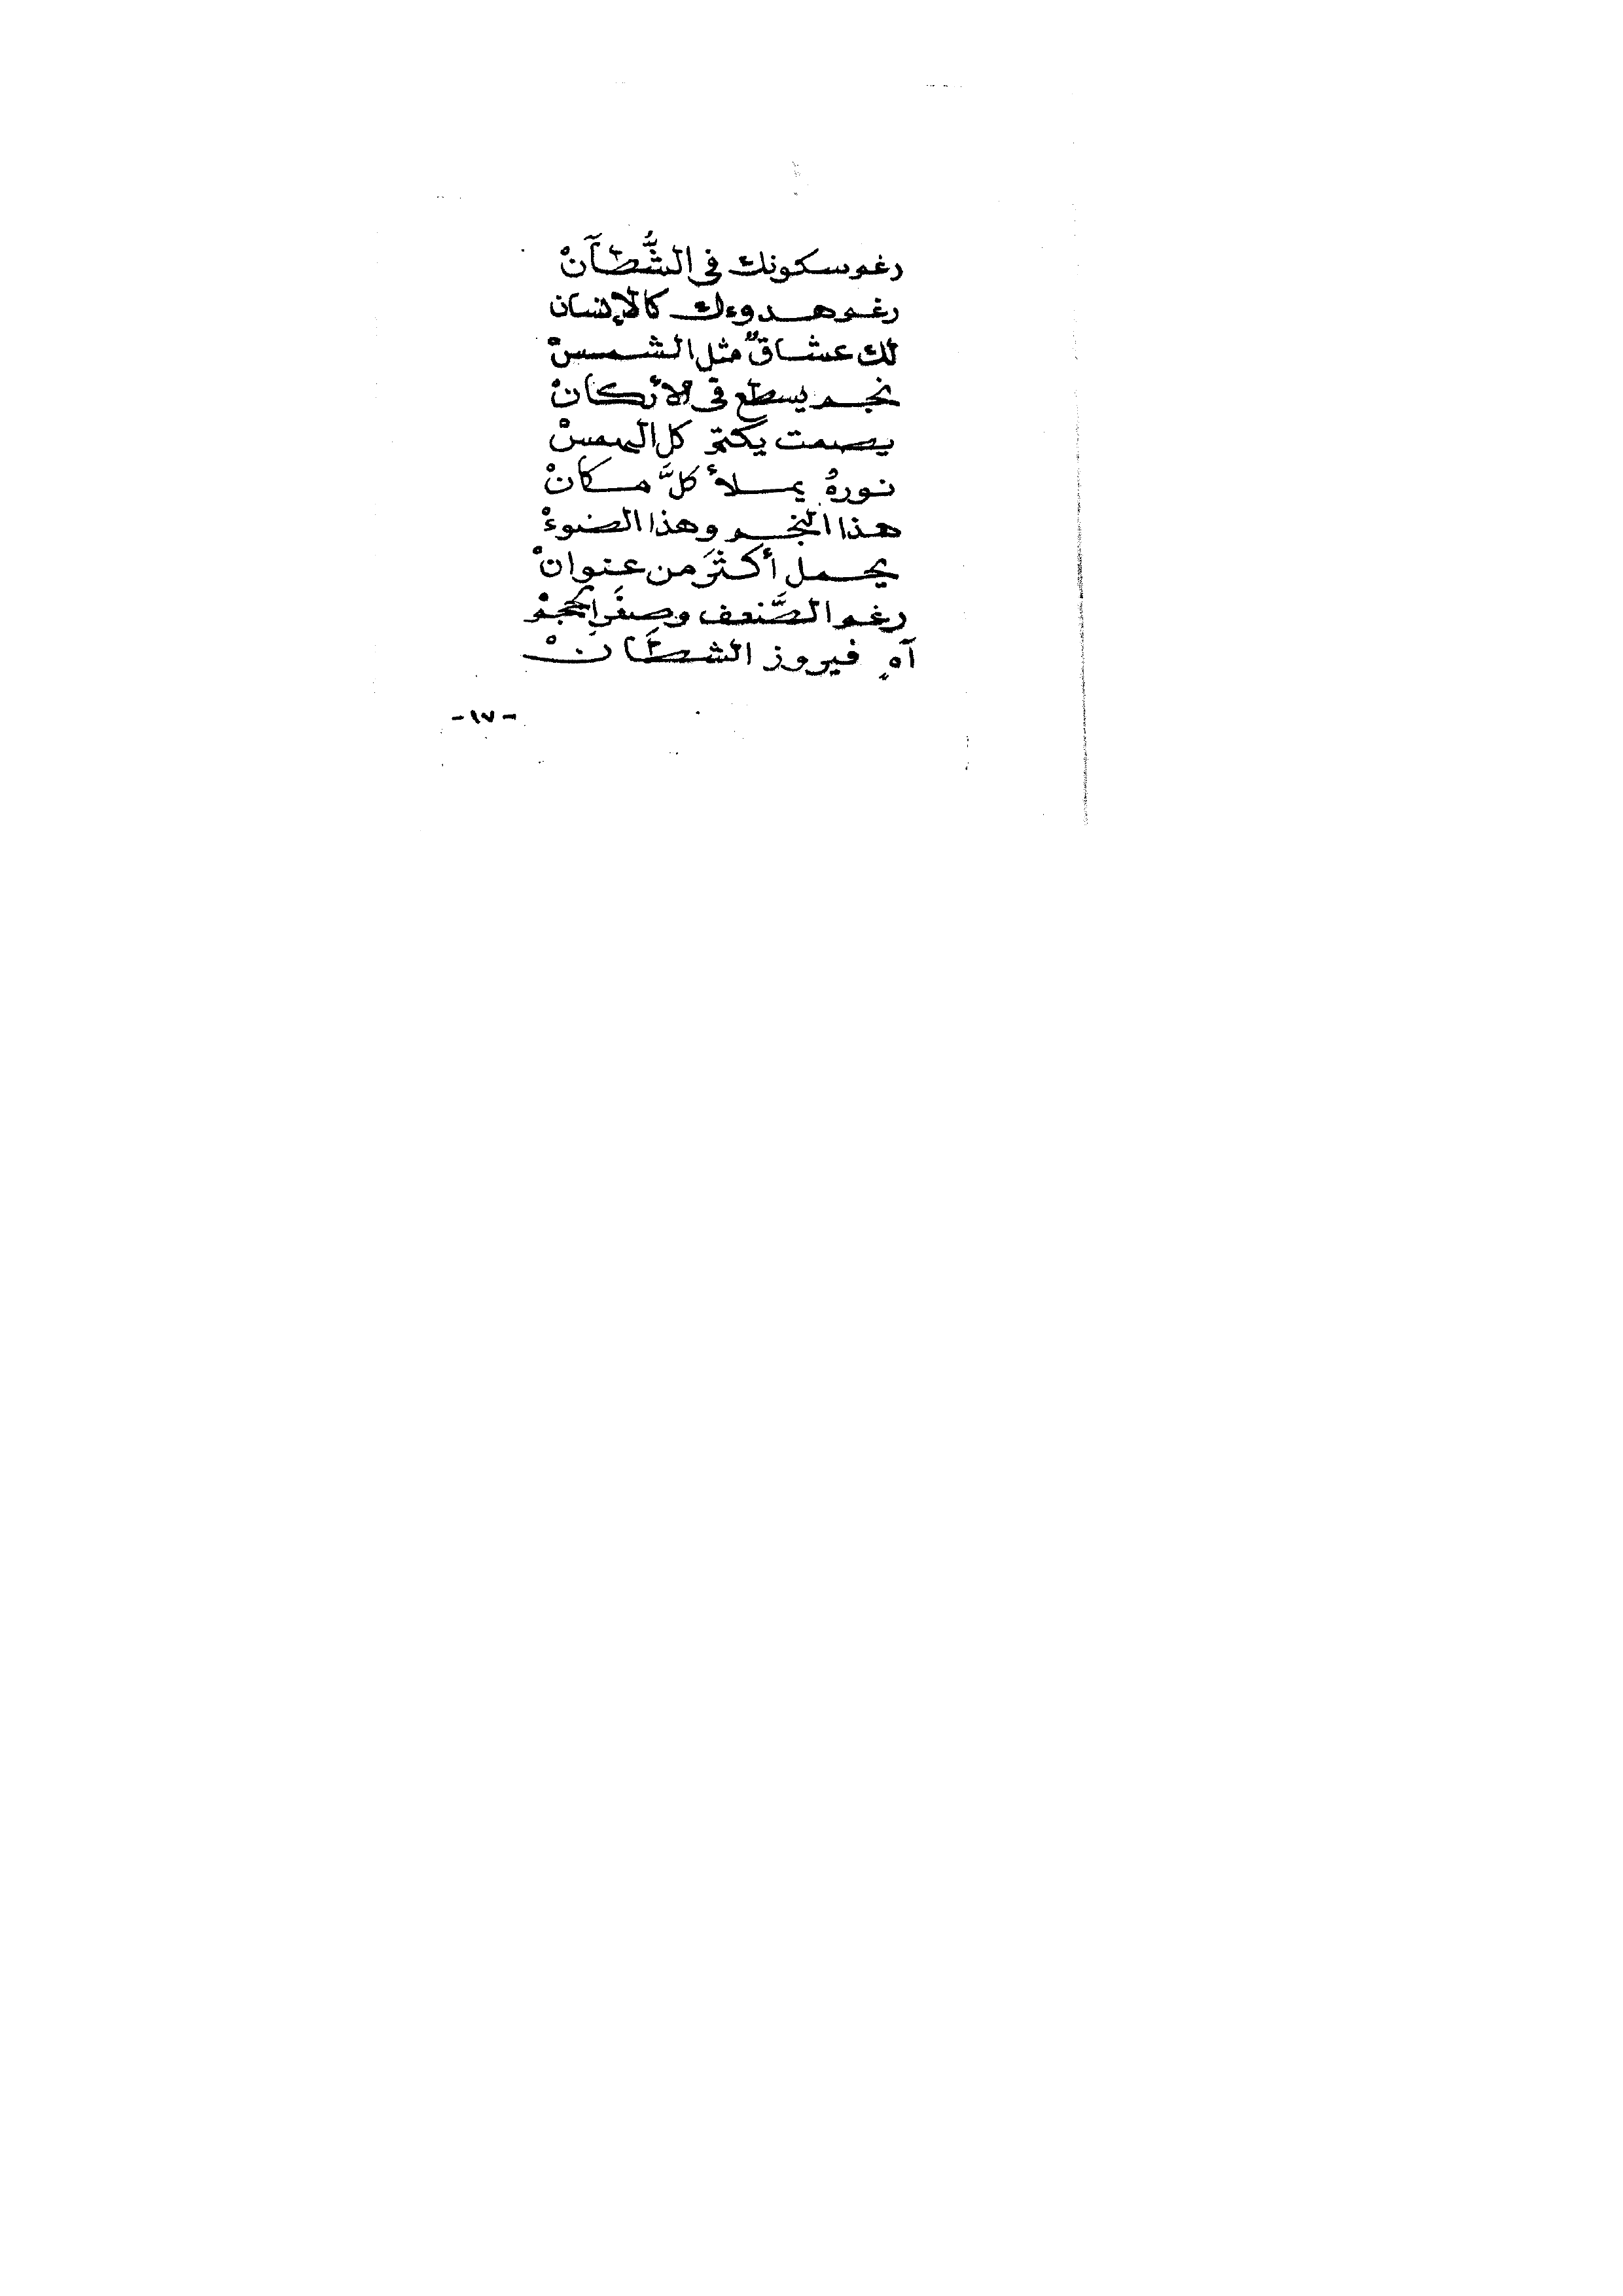 رغم سكونك في الشُّطآنْ
رغم هدوءك كالإنسان
لك عشاقٌ مثل الشمسْ
نجم يسطع في الأركانْ
يصمت يكتم كل الهمسْ
نورهُ يملأ كلَّ مكانْ
هذا النجم وهذا الضوءْ
يحمل أكثرَ من عنوانْ
رغم الضَّعف وصغَرِ الحجمْ
آهٍ فيروز الشطَآنْ
-١٧-